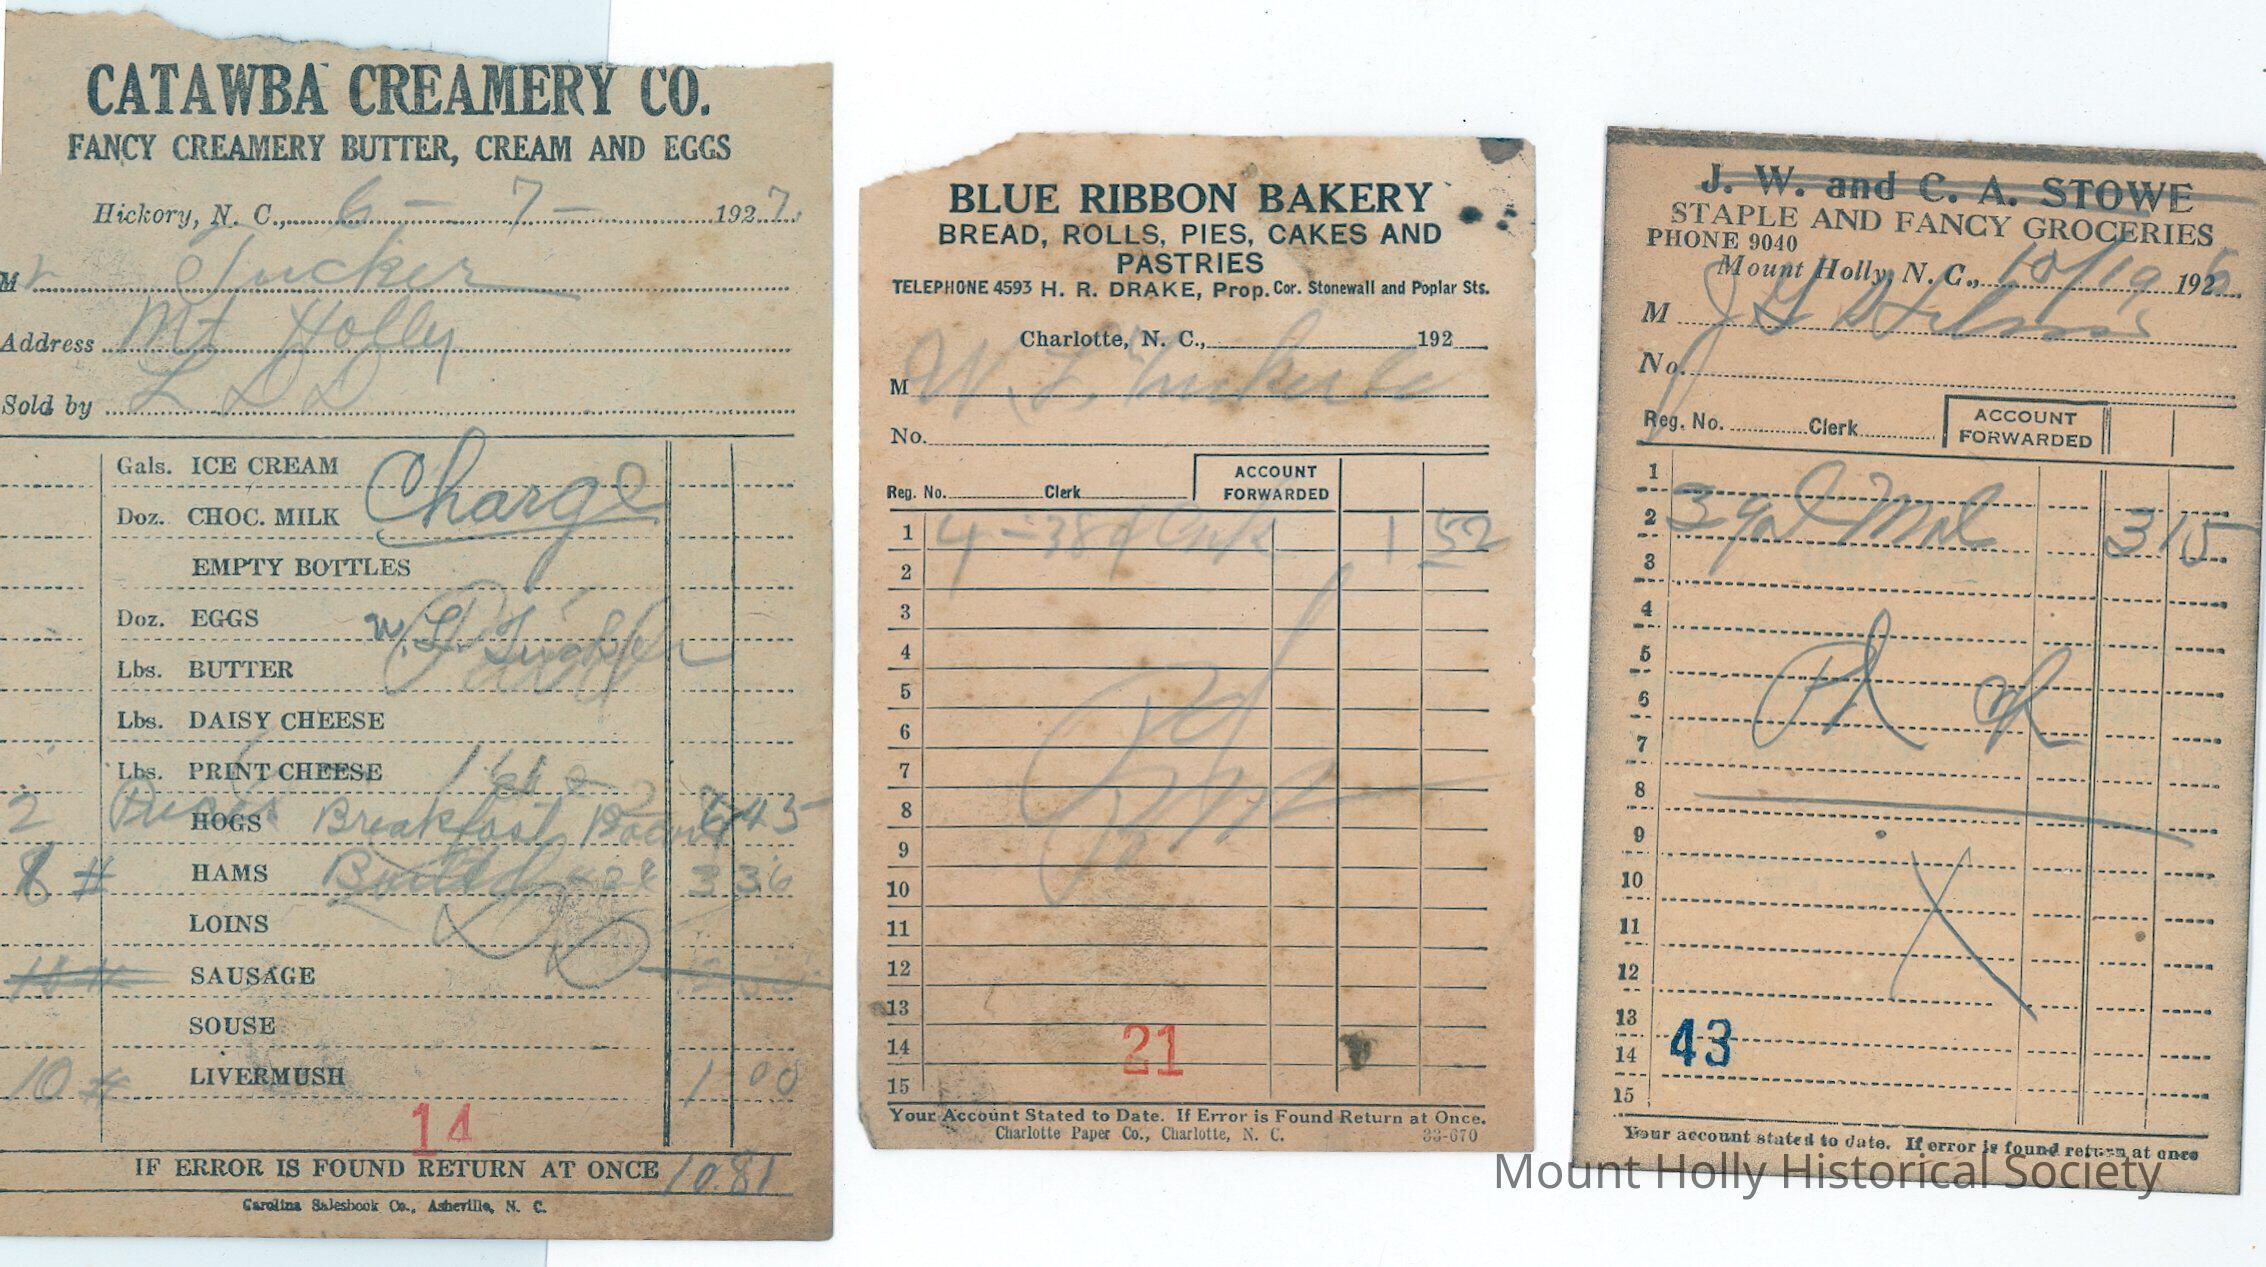 CATAWBA CREAMERY CO.
FANCY CREAMERY BUTTER, CREAM AND EGGS
Hickory, N. C., 6 - 7 - 1927.
Mr Tucker
Address Mt Holly
Sold by L D D
Gals. ICE CREAM
Charge
Doz. CHOC. MILK
EMPTY BOTTLES
Doz. EGGS
W. L. Tucker
Lbs. BUTTER
Lbs. DAISY CHEESE
Lbs. PRINT CHEESE
2 HOGS Breakfast Bacon 6 45
8 # HAMS Boiled 3 36
LOINS
SAUSAGE
SOUSE
10 # LIVERMUSH 1 00
14
IF ERROR IS FOUND RETURN AT ONCE 10.81
Carolina Salesbook Co., Asheville, N. C.
BLUE RIBBON BAKERY
BREAD, ROLLS, PIES, CAKES AND
PASTRIES
TELEPHONE 4593 H. R. DRAKE, Prop. Cor. Stonewall and Poplar Sts.
Charlotte, N. C., 192
M W. L. Tucker Co
No.
ACCOUNT
Reg. No. Clerk FORWARDED
1 4 - 38¢ Cake 1 52
2
3
4
5
6
7
8
9
10
11
12
13
14
21
15
Your Account Stated to Date. If Error is Found Return at Once.
Charlotte Paper Co., Charlotte, N. C. 33-670
J. W. and C. A. STOWE
STAPLE AND FANCY GROCERIES
PHONE 9040
Mount Holly, N. C., 10/19 192
M J G
No.
Reg. No. Clerk ACCOUNT
FORWARDED
1
2 3 gal 3 15
3
4
5
6
7
8
9
10
11
12
13
43
14
15
Your account stated to date. If error is found return at once
Mount Holly Historical Society